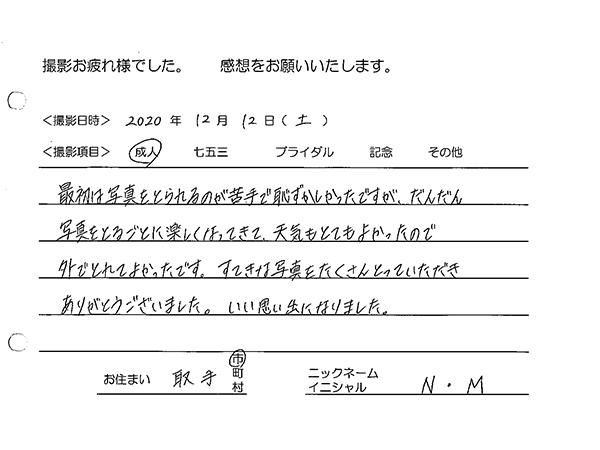 撮影お疲れ様でした。 感想をお願いいたします。
<撮影日時> 2020 年 12 月 12 日 ( 土 )
<撮影項目> 成人 七五三 ブライダル 記念 その他
最初は写真をとられるのが苦手で恥ずかしかったですが、だんだん
写真をとるごとに楽しくなってきて、天気もとてもよかったので
外でとれてよかったです。すてきな写真をたくさんとっていただき
ありがとうございました。いい思い出になりました。
お住まい 取手 市町村 ニックネーム イニシャル N・M